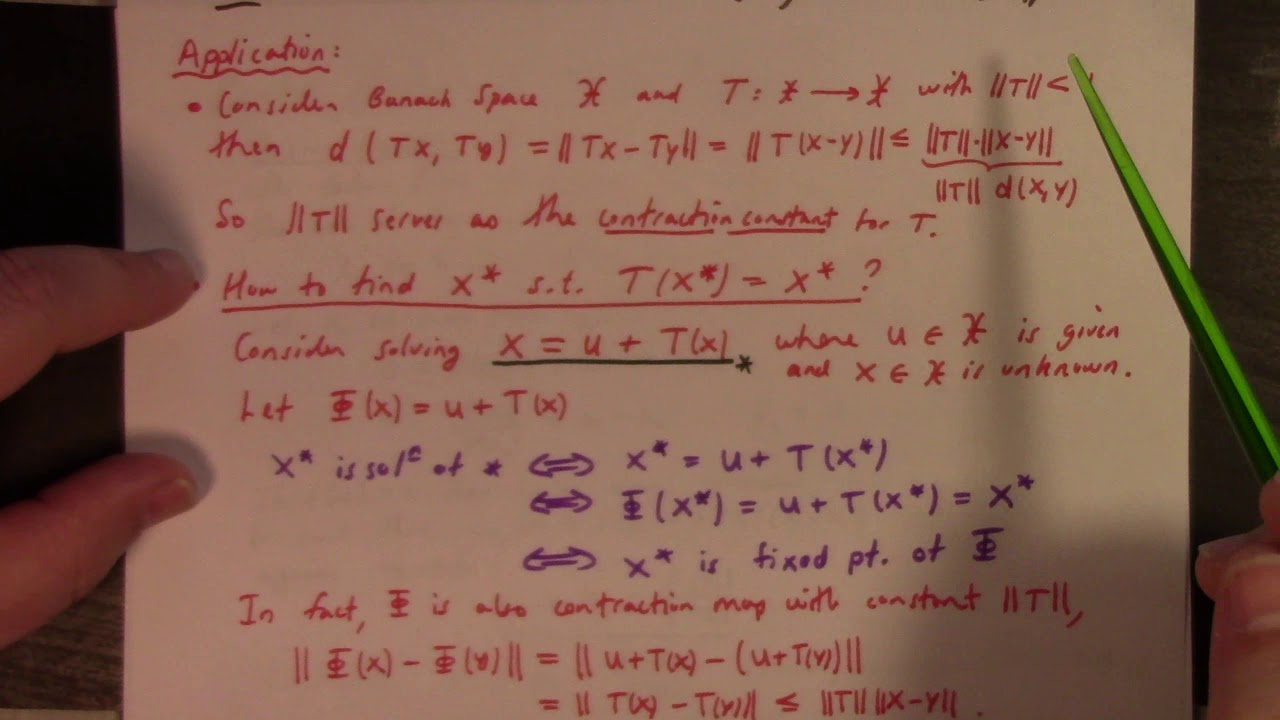 Application:
• Consider Banach Space X and T: X → X with ||T|| <
then d(Tx, Ty) = ||Tx - Ty|| = ||T(x-y)|| ≤ ||T||·||x-y||
||T|| d(x,y)
So ||T|| serves as the contraction constant for T.
How to find x* s.t. T(x*) = x*?
Consider solving x = u + T(x) * where u ∈ X is given
and x ∈ X is unknown.
Let Φ(x) = u + T(x)
x* is solⁿ of * ⟺ x* = u + T(x*)
⟺ Φ(x*) = u + T(x*) = x*
⟺ x* is fixed pt. of Φ
In fact, Φ is also contraction map with constant ||T||,
||Φ(x) - Φ(y)|| = ||u+T(x) - (u+T(y))||
= ||T(x) - T(y)|| ≤ ||T|| ||x-y||.